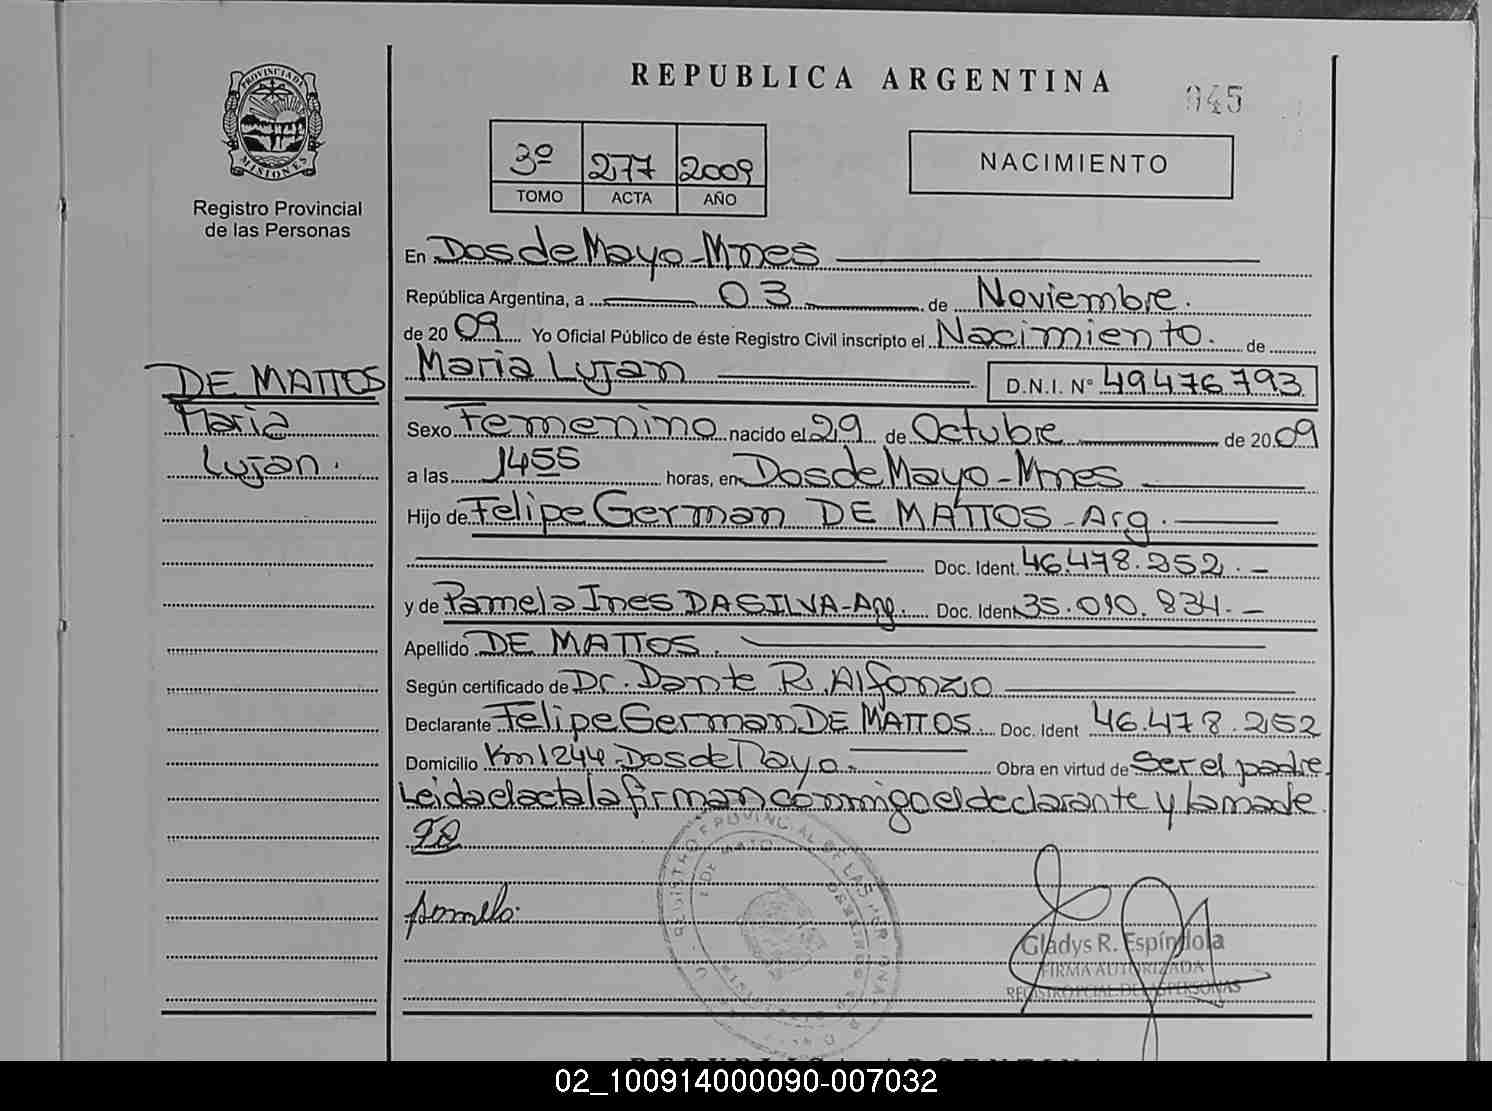 REPUBLICA ARGENTINA
045
PROVINCIA DE MISIONES
Registro Provincial
de las Personas
3º 277 2009
TOMO ACTA AÑO
NACIMIENTO
En Dos de Mayo - Mnes
República Argentina, a 03 de Noviembre.
de 20 09 Yo Oficial Público de éste Registro Civil inscripto el Nacimiento. de
Maria Lujan D.N.I. N° 49476793
DE MATTOS
Maria
Lujan.
Sexo Femenino nacido el 29 de Octubre de 20 09
a las 1455 horas, en Dos de Mayo - Mnes
Hijo de Felipe German DE MATTOS - Arg.
Doc. Ident. 46.478.252.-
y de Pamela Ines DA SILVA - Arg. Doc. Ident 35.010.834.-
Apellido DE MATTOS.
Según certificado de Dr. Dante R. Alfonzo
Declarante Felipe German DE MATTOS. Doc. Ident 46.478.252
Domicilio Km 1244 - Dos de Mayo. Obra en virtud de Ser el padre
Leida el acta la firman conmigo el declarante y la madre.
pamela.
Gladys R. Espíndola
FIRMA AUTORIZADA
REGISTRO PCIAL. DE LAS PERSONAS
REPUBLICA ARGENTINA
02_100914000090-007032